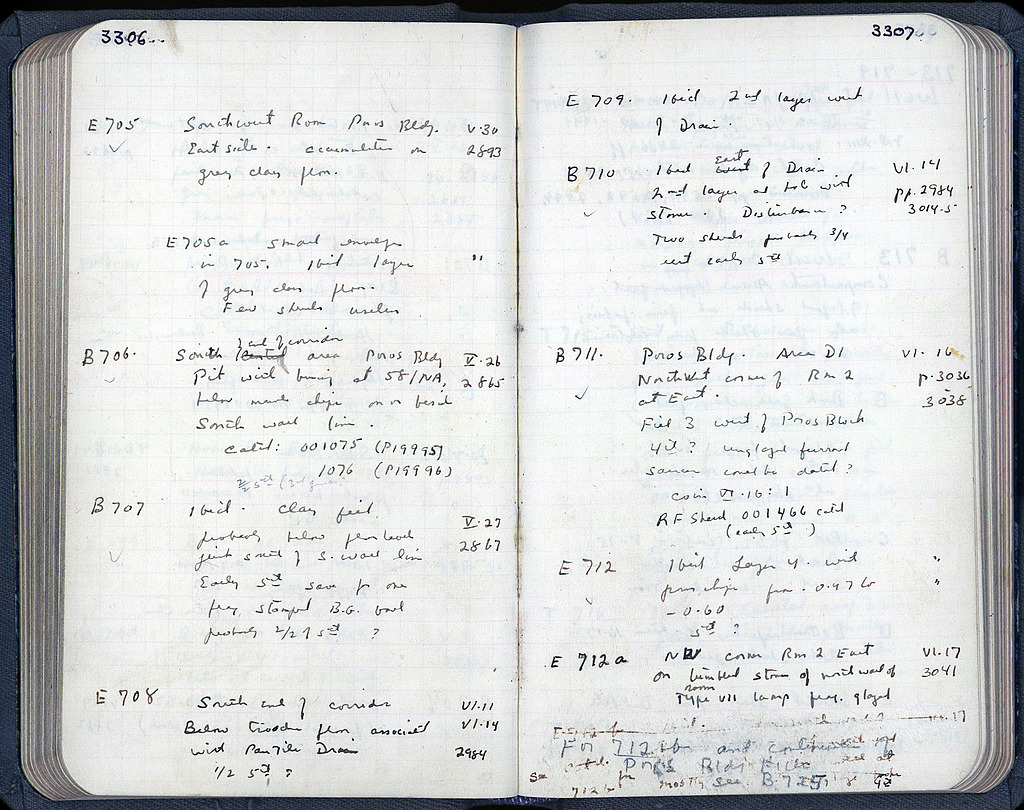 3306
E 705 Southwest Room Poros Bldg. V·30
East side. accumulation on 2893
grey clay floor.
E 705a small envelope
in 705. Ibid layer "
of grey clay floor.
Few sherds useless
B 706. South end of corridor area Poros Bldg V·26
Pit with burning at 58/NA, 2865
below marble chips on or beside
South wall line.
Catd: 001075 (P19995)
1076 (P19996)
B 707 Ibid. Clay fill V·27
probably below floor level 2867
just south of S. wall line
Early 5th save for one
frag. stamped B.G. bowl
probably 2/2 of 5th ?
E 708 South end of corridor VI·11
Below trodden floor associated VI·14
with Pan Tile Drain 2984
1/2 5th ?
3307
E 709. Ibid 2nd layer west
of Drain
B 710 Ibid East of Drain VI·14
2nd layer at with pp. 2984
stones. Disturbance ? 3014-5
Two sherds 3/4
rest early 5th
B 711. Poros Bldg. Area D1 VI·16
Northwest corner of Rm 2 p. 3036
at East. 3038
Fill 3 west of Poros Block
4th ? unglazed
saucer could be dated ?
Coin VI·16:1
RF Sherd 001466 catd
(early 5th)
E 712 Ibid Layer 4. with "
poros chips from -0.47 to "
-0.60
5th ?
E 712a NW corner Rm 2 East VI·17
on tumbled stones of north wall of room 3041
Type VII lamp frag. glazed
VI·17
For 712 b and
Poros Bldg Fills
See 712 b for mostly see B 725